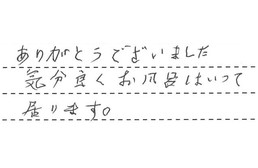 ありがとうございました
気分良くお風呂はいって
居ります。